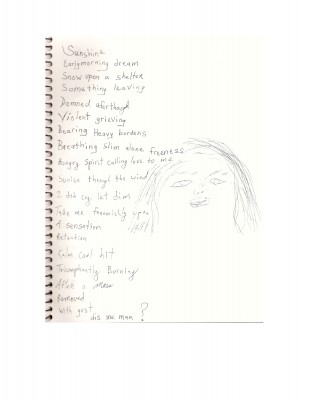 Sunshine
Early morning dream
Snow open a shelter
Something leaving
Demned afterthough
Violent grieving
Bearing Heavy burdens
Breathing Slim alone freeness
Hungry Spirit calling love to me
Sunise though the wind
I did cry. let dim
Take me upon
A sensation
Retention
Calm Cool hit
Triumphantly Burning
After a
Removed
With gust
dis me man ?